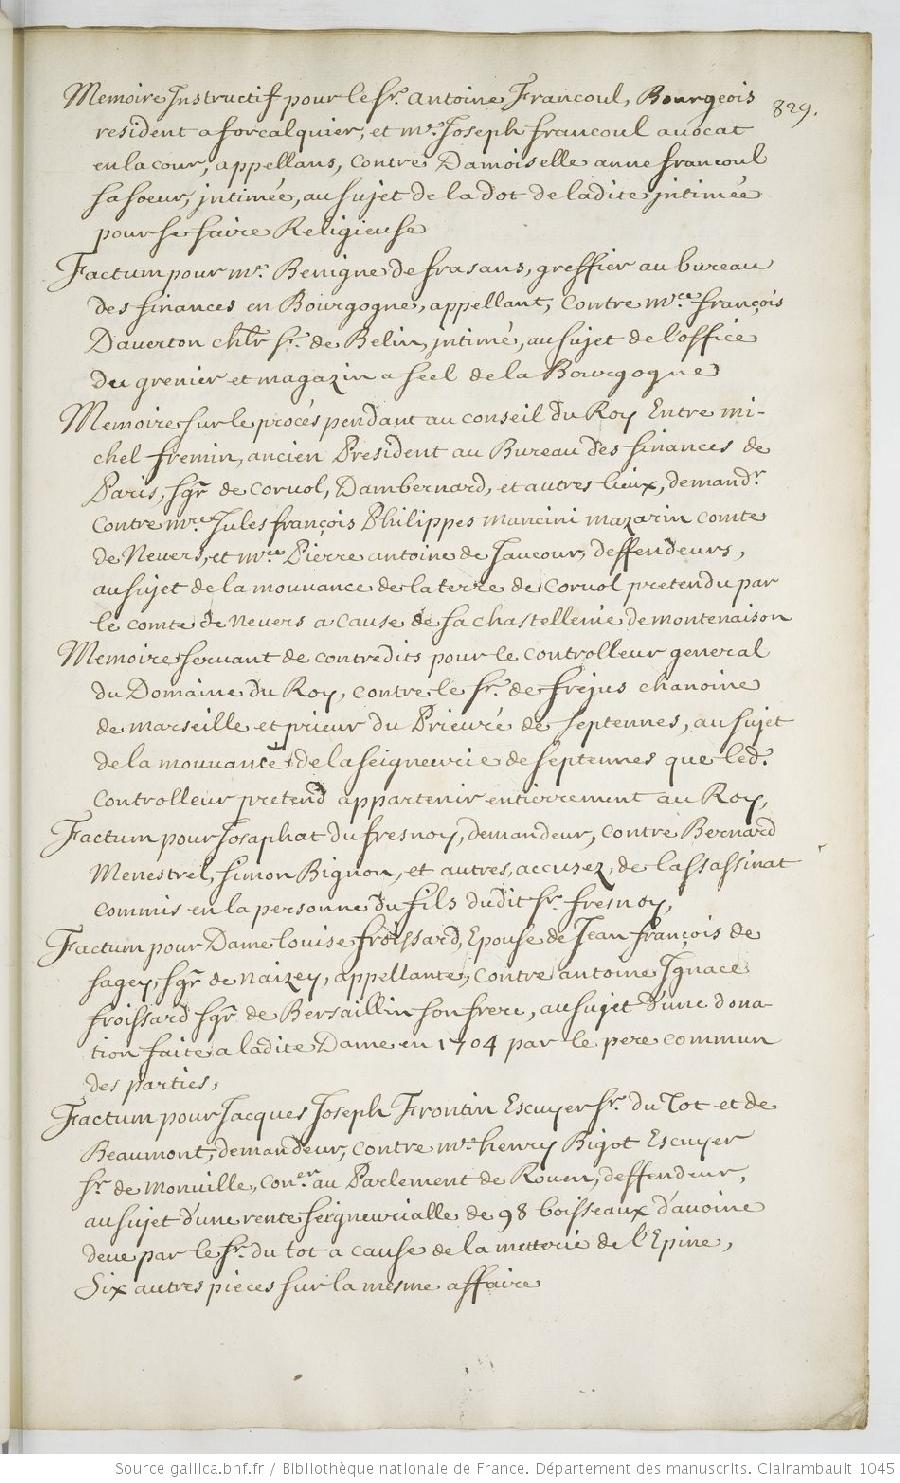 Memoire Instructif pour le Sr. Antoine Francoul, Bourgeois
829.
resident a forcalquier, et mr. Joseph francoul avocat
en la cour, appellans, contre Damoiselle anne francoul
sa soeur, jntimée, au sujet de la dot de ladite jntimée
pour se faire Religieuse
Factum pour mr. Benigne de frasans, greffier au bureau
des finances en Bourgogne, appellant, contre mre. françois
Daverton chlr Sr. de Belin, jntimé, au sujet de l'office
du grenier et magazin a seel de la Bourgogne
Memoire sur le procés pendant au conseil du Roy Entre mi-
chel fremin, ancien President au Bureau des finances de
Paris, sgr de Corvol, Dambernard, et autres lieux, demandr.
Contre mre. Jules françois Philippes mancini mazarin comte
de Nevers, et mre. Pierre antoine de Jaucour, deffendeurs,
au sujet de la mouvance de la terre de Corvol pretendu par
le comte de Nevers a cause de sa chastellenie de montenaison
Memoire servant de contredits pour le controlleur general
du Domaine du Roy, contre le Sr. de frejus chanoine
de marseille et prieur du Prieuré de Septennes, au sujet
de la mouvance de la seigneurie de septennes que led.
Controlleur pretend appartenir entierrement au Roy,
Factum pour Josaphat du fresnoy, demandeur, contre Bernard
Menestrel, simon Bignon, et autres, accusez de l'assassinat
commis en la personne du fils dudit Sr. fresnoy,
Factum pour Dame louise froissard, Epouse de Jean françois de
sagey, sgr de naizey, appellante, contre antoine Ignace
froissard sgr de Bersaillin son frere, au sujet d'une dona-
tion faite a ladite Dame en 1704 par le pere commun
des parties,
Factum pour Jacques Joseph Frontin Escuyer Sr. du Tot et de
Beaumont, demandeur, contre mre henry Bigot Escuyer
Sr. de monville, coner. au Parlement de Rouen, deffendeur,
au sujet d'une rente seigneurialle de 98 boisseaux d'avoine
deue par le Sr. du tot a cause de la metterie de l'Epine,
Six autres pieces sur la mesme affaire
Source gallica.bnf.fr / Bibliothèque nationale de France. Département des manuscrits. Clairambault 1045